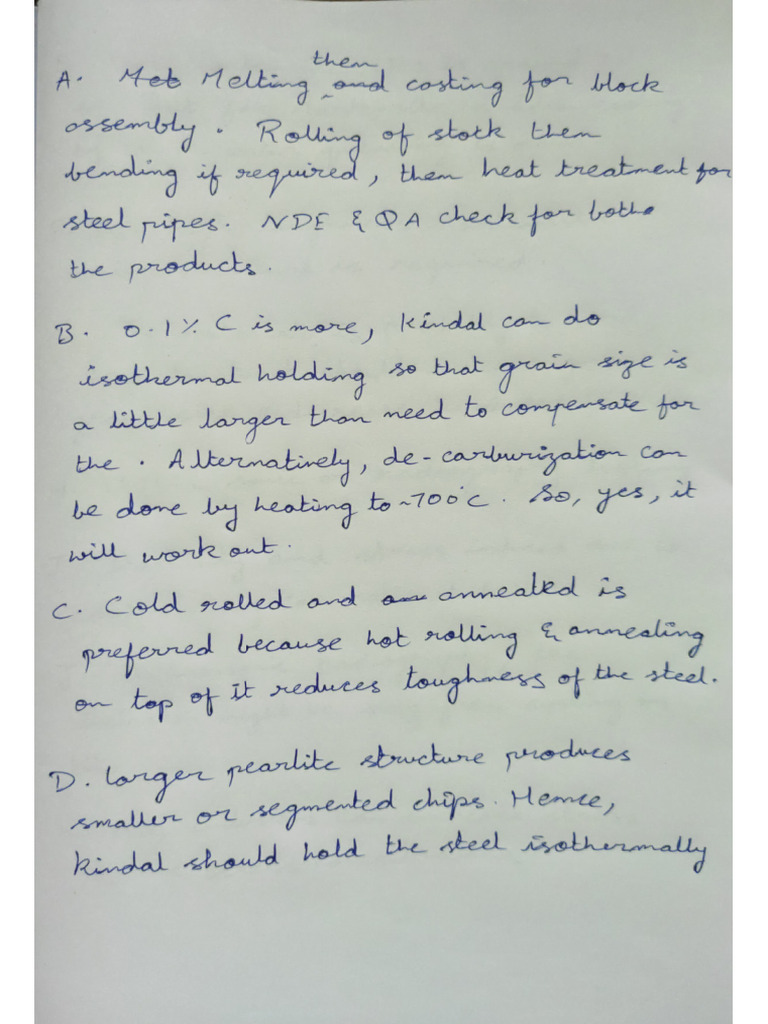 then
A. Met Melting ^ and casting for block
assembly. Rolling of stock then
bending if required, then heat treatment for
steel pipes. NDE & QA check for both
the products.
B. 0.1% C is more, Kindal can do
isothermal holding so that grain size is
a little larger than need to compensate for
the. Alternatively, de-carburization can
be done by heating to ~700°C. So, yes, it
will work out.
C. Cold rolled and annealed is
preferred because hot rolling & annealing
on top of it reduces toughness of the steel.
D. Larger pearlite structure produces
smaller or segmented chips. Hence,
Kindal should hold the steel isothermally